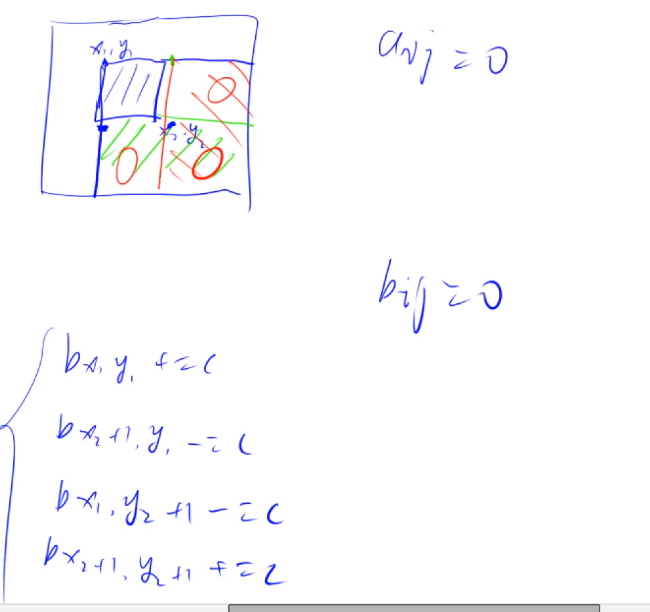 x₁, y₁
x₂, y₂
aij = 0
bij = 0
bx₁, y₁ += c
bx₂+1, y₁ -= c
bx₁, y₂+1 -= c
bx₂+1, y₂+1 += c